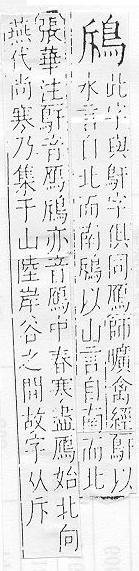 䳚
此字與鳱字俱同鴈師曠禽經鳱以
水言自北而南䳚以山言自南而北
張華注鳱音鴈䳚亦音鴈中春寒盡鴈始北向
燕代尚寒乃集于山陸岸谷之間故字从斥